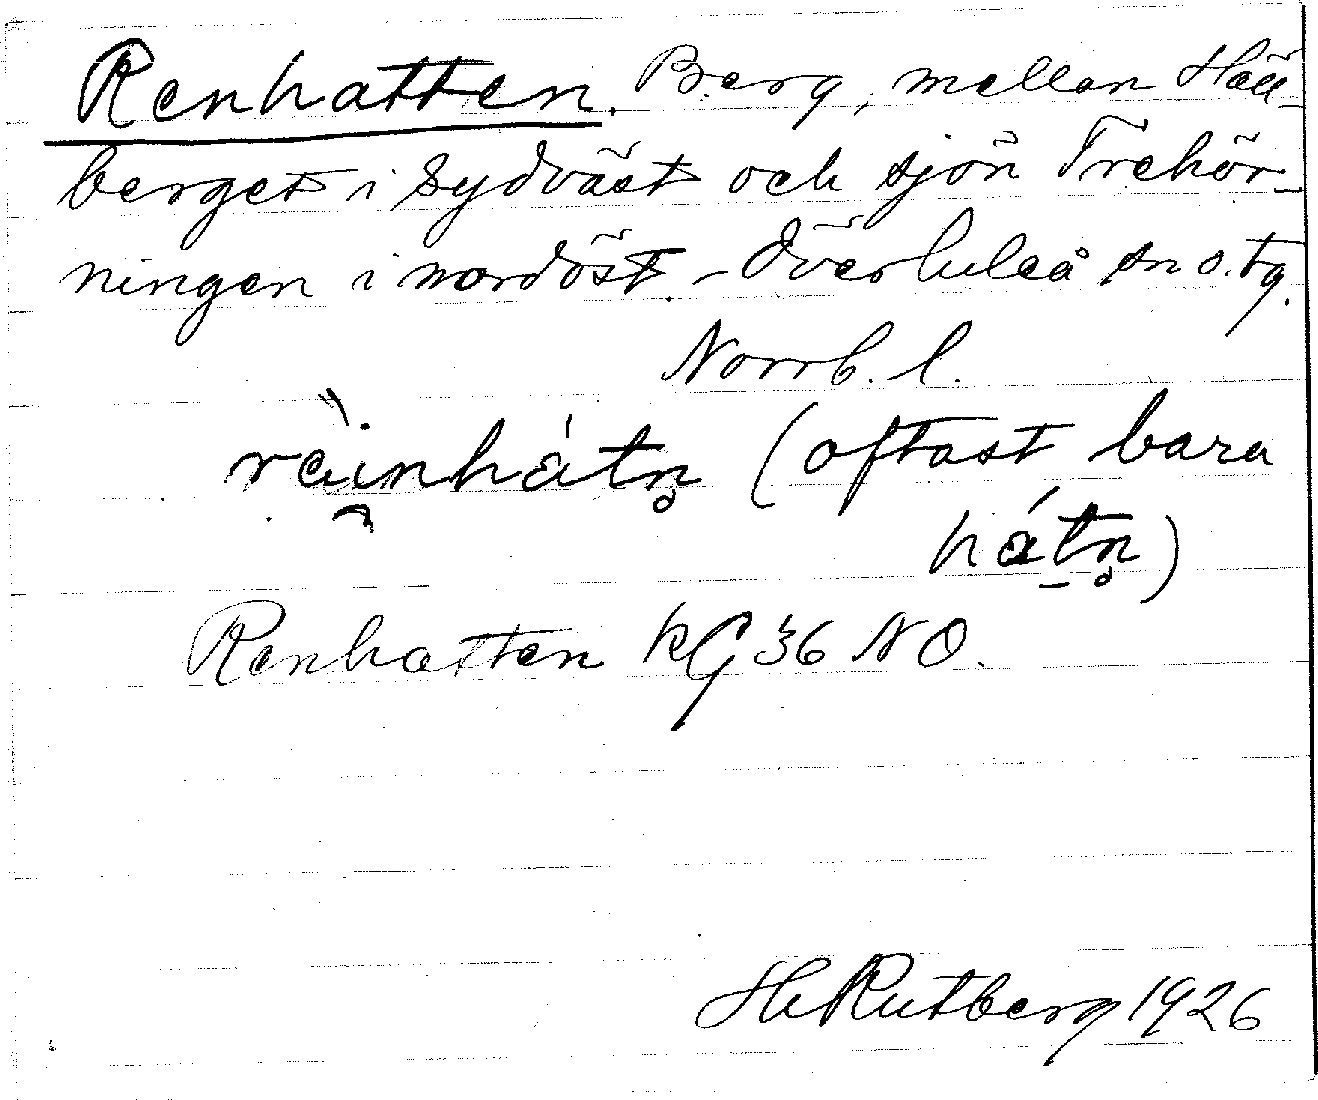 Renhatten. Berg, mellan Häll-
berget i sydväst och sjön Trehör-
ningen i nordöst. - Överluleå sn o. tg.
Norrb. l.
rä̀i̯nhátn̥ (oftast bara
hátn̥)
Renhatten kG 36 NO.
H Rutberg 1926